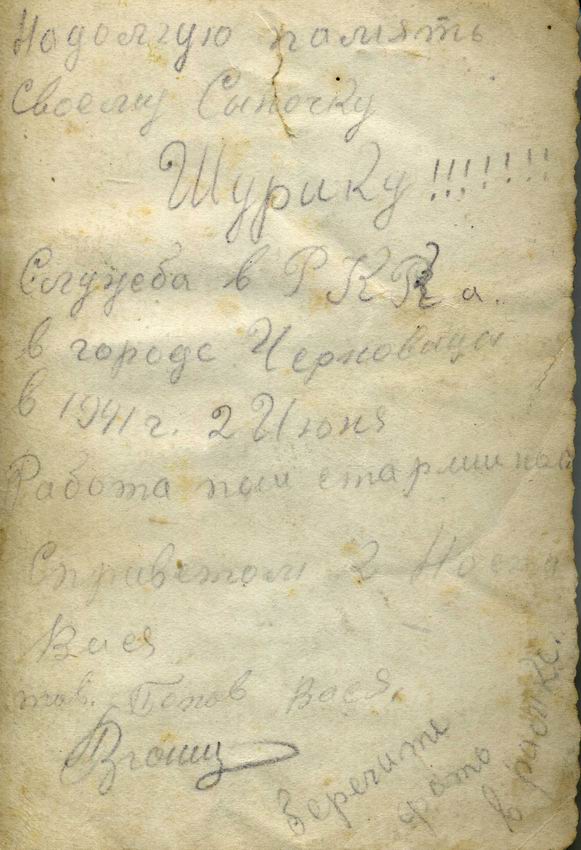 Надолгую память
Своему Сыночку
Шурику !!!!!!!
Служба в РККа.
в городе Черновица
в 1941 г. 2 Июня
Работа
Сприветом 2
Вася
тов. Попов Вася.
Берегите
фото
в